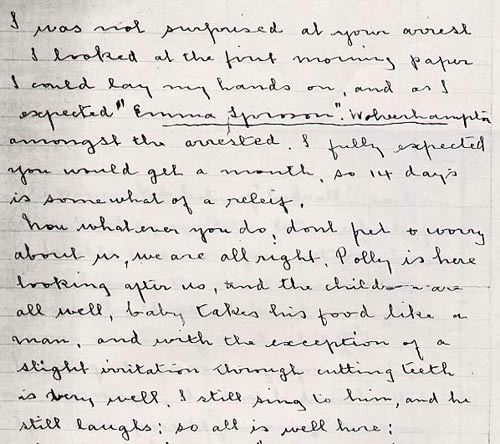 I was not surprised at your arrest
I looked at the first morning paper
I could lay my hands on, and as I
expected "Emma Sproson". Wolverhampton
amongst the arrested. I fully expected
you would get a month, so 14 days
is somewhat of a releif.
Now whatever you do, dont fret & worry
about us, we are all right. Polly is here
looking after us, and the are
all well, baby takes his food like a
man, and with the exception of a
slight irritation through cutting teeth
is very well. I still sing to him, and he
still laughs: so all is well here: